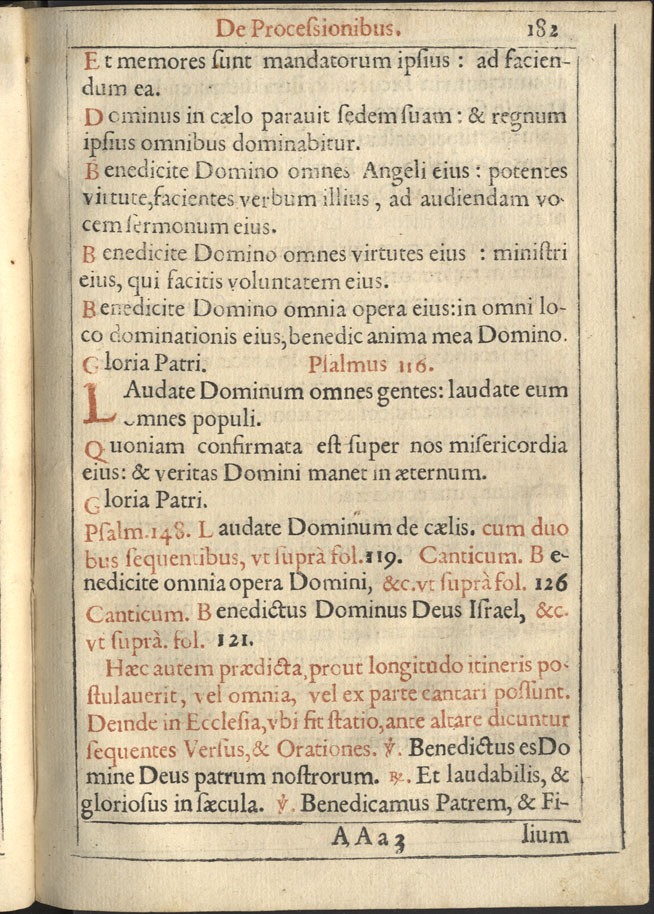 De Proceſsionibus. 182
Et memores ſunt mandatorum ipſius : ad facien-
dum ea.
Dominus in cælo parauit ſedem ſuam : & regnum
ipſius omnibus dominabitur.
Benedicite Domino omnes Angeli eius : potentes
virtute, facientes verbum illius, ad audiendam vo-
cem ſermonum eius.
Benedicite Domino omnes virtutes eius : miniſtri
eius, qui facitis voluntatem eius.
Benedicite Domino omnia opera eius: in omni lo-
co dominationis eius, benedic anima mea Domino.
Gloria Patri. Pſalmus 116.
LAudate Dominum omnes gentes: laudate eum
omnes populi.
Quoniam confirmata eſt ſuper nos miſericordia
eius: & veritas Domini manet in æternum.
Gloria Patri.
Pſalm. 148. Laudate Dominum de cælis. cum duo
bus ſequentibus, vt ſuprà fol. 119. Canticum. Be-
nedicite omnia opera Domini, &c. vt ſuprà fol. 126
Canticum. Benedictus Dominus Deus Iſrael, &c.
vt ſuprà. fol. 121.
Hæc autem prædicta, prout longitudo itineris po-
ſtulauerit, vel omnia, vel ex parte cantari poſſunt.
Deinde in Eccleſia, vbi fit ſtatio, ante altare dicuntur
ſequentes Verſus, & Orationes. ℣. Benedictus es Do
mine Deus patrum noſtrorum. ℟. Et laudabilis, &
glorioſus in ſæcula. ℣. Benedicamus Patrem, & Fi-
AAa3 lium